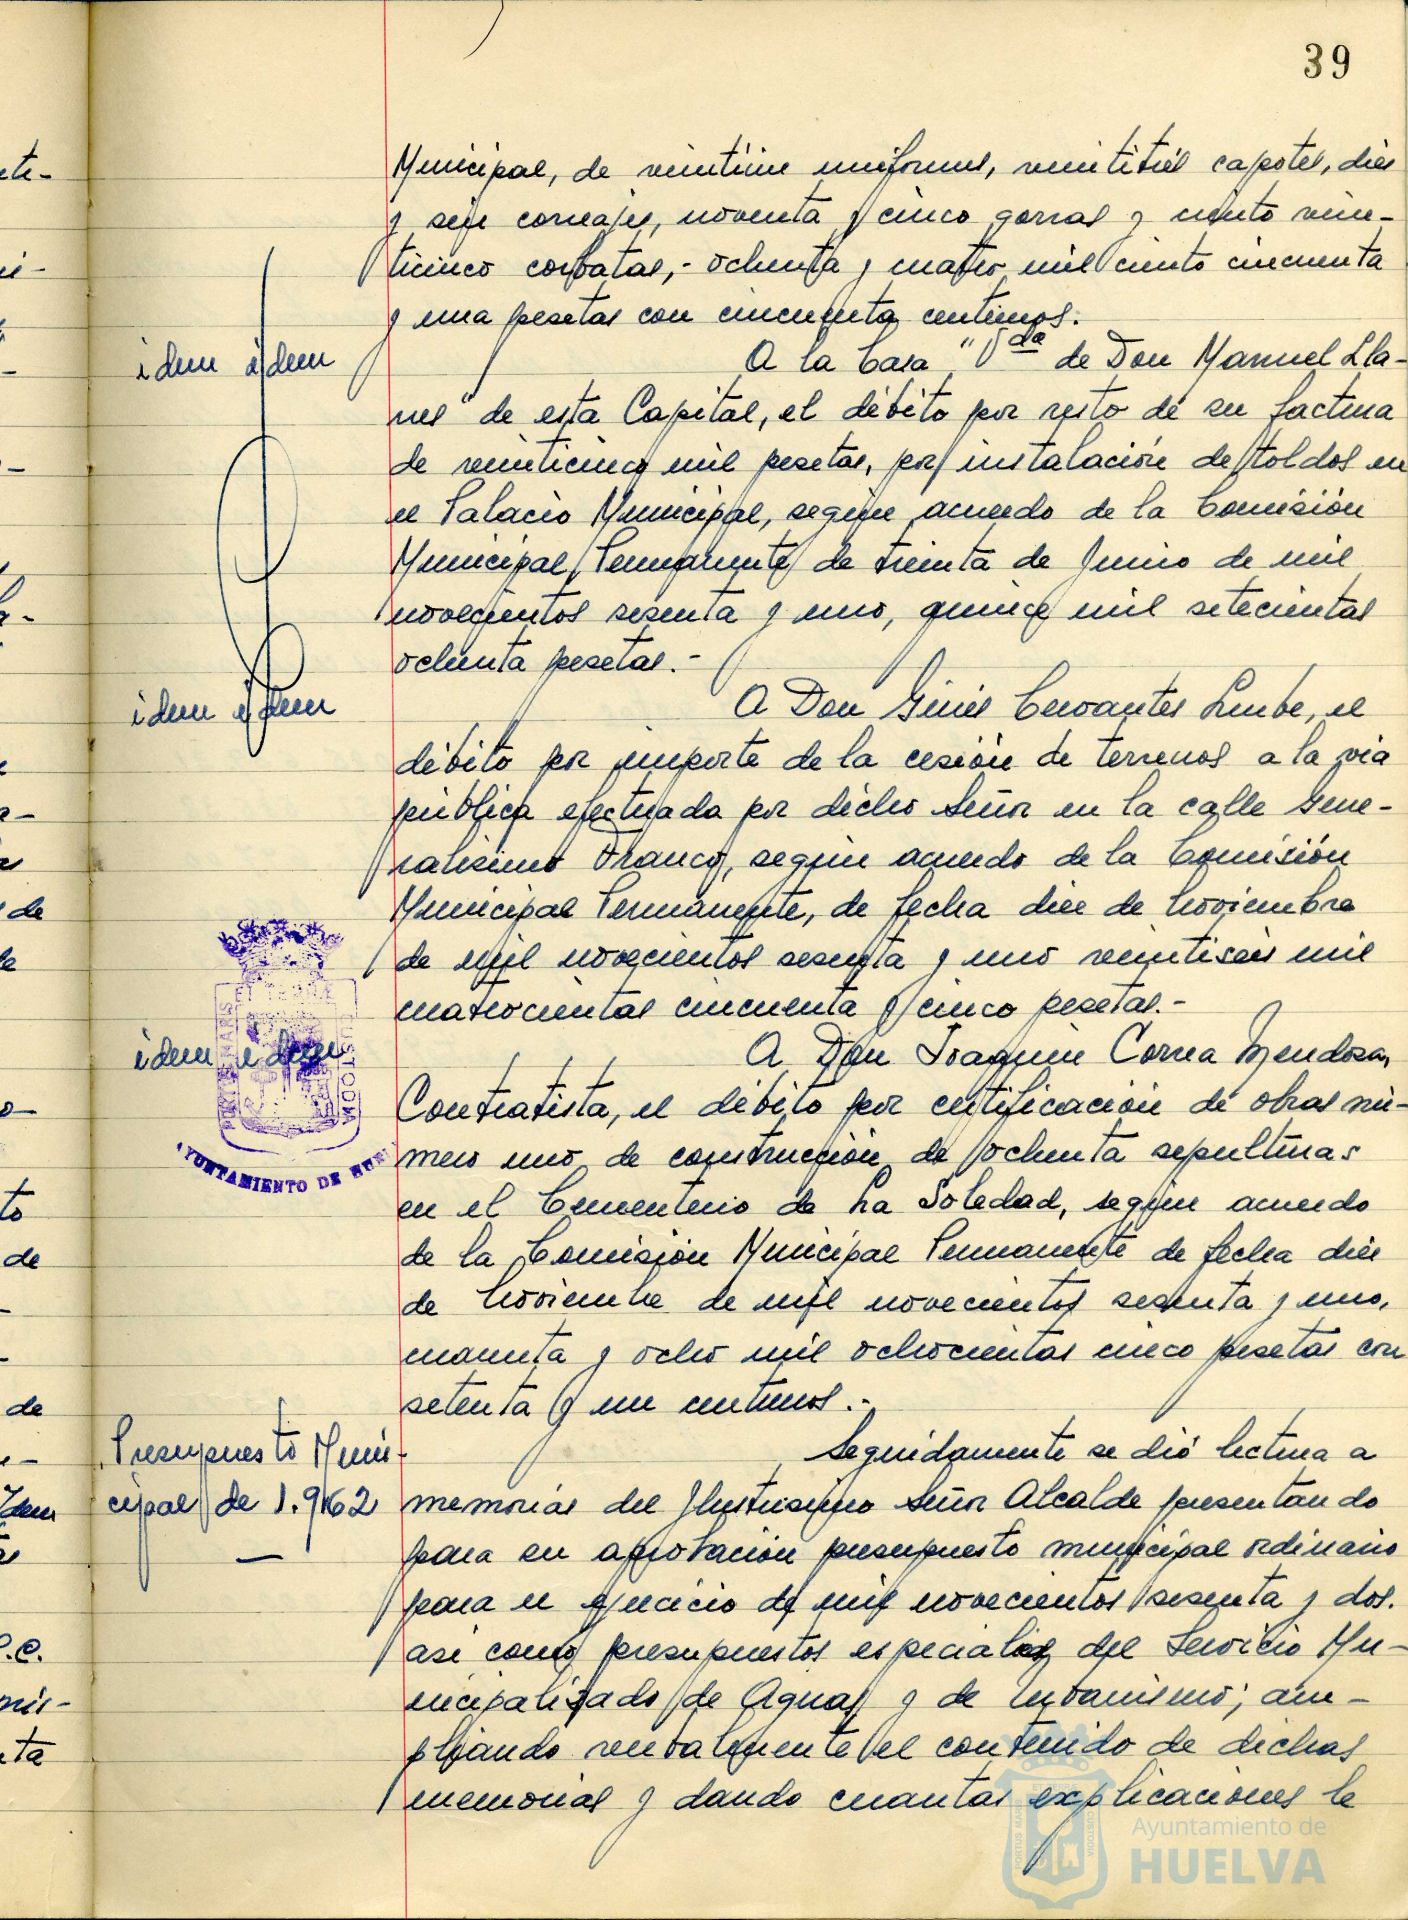 39
Municipal, de veintiún uniformes, veintitrés capotes, diez
y seis correajes, noventa y cinco gorras y ciento vein-
ticinco corbatas,- ochenta y cuatro mil ciento cincuenta
y una pesetas con cincuenta centimos.
idem idem
A la Casa "Vda de Don Manuel Lla-
nes" de esta Capital, el débito por resto de su factura
de veinticinco mil pesetas, por instalación de toldos en
el Palacio Municipal, según acuerdo de la Comisión
Municipal Permanente de treinta de Junio de mil
novecientos sesenta y uno, quince mil setecientas
ochenta pesetas.-
idem idem
A Don Ginés Cervantes, el
débito por importe de la cesión de terrenos a la via
pública efectuada por dicho Señor en la calle Gene-
ralisimo Franco, según acuerdo de la Comisión
Municipal Permanente, de fecha diez de Noviembre
de mil novecientos sesenta y uno veintiseis mil
cuatrocientas cincuenta y cinco pesetas.-
idem idem
A Don Joaquin Correa Mendoza,
Contratista, el débito por certificación de obras nú-
mero uno de construcción de ochenta sepulturas
en el Cementerio de La Soledad, según acuerdo
de la Comisión Municipal Permanente de fecha diez
de Noviembre de mil novecientos sesenta y uno,
cuarenta y ocho mil ochocientas cinco pesetas con
setenta y un centimos.-
Presupuesto Muni-
cipal de 1.962
Seguidamente se dió lectura a
memorias del Ilustrisimo Señor Alcalde presentando
para su aprobación presupuesto municipal ordinario
para el ejercicio de mil novecientos sesenta y dos.
asi como presupuestos especiales del Servicio Mu-
nicipalizado de Aguas y de Urbanismo; am-
pliando verbalmente el contenido de dichas
memorias y dando cuantas explicaciones le
PORTUS MARIS
ET TERRAE
CUSTODIA
AYUNTAMIENTO DE HUEL
Ayuntamiento de
HUELVA